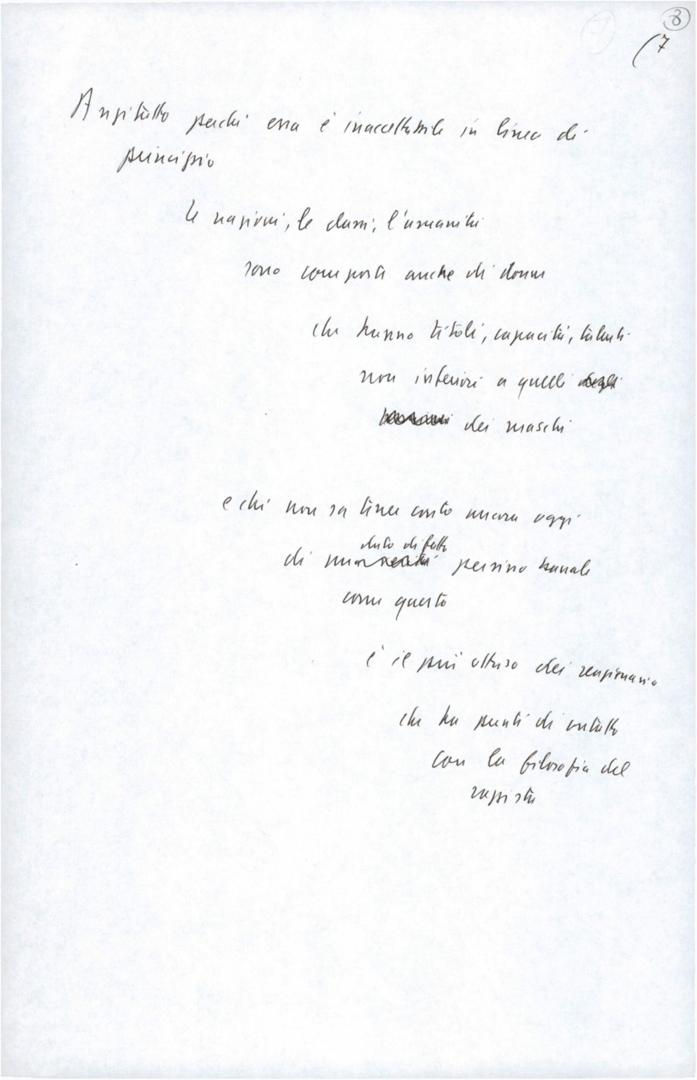 8
7
Anzitutto perché essa è inaccettabile in linea di
principio
le nazioni, le classi, l'umanità
sono composte anche di donne
che hanno titoli, capacità, talenti
non inferiori a quelli degli
dei maschi
e chi non sa tener conto ancora oggi
dato di fatto
di un persino banale
come questo
è il più ottuso dei reazionari
che ha punti di contatto
con la filosofia del
razzista